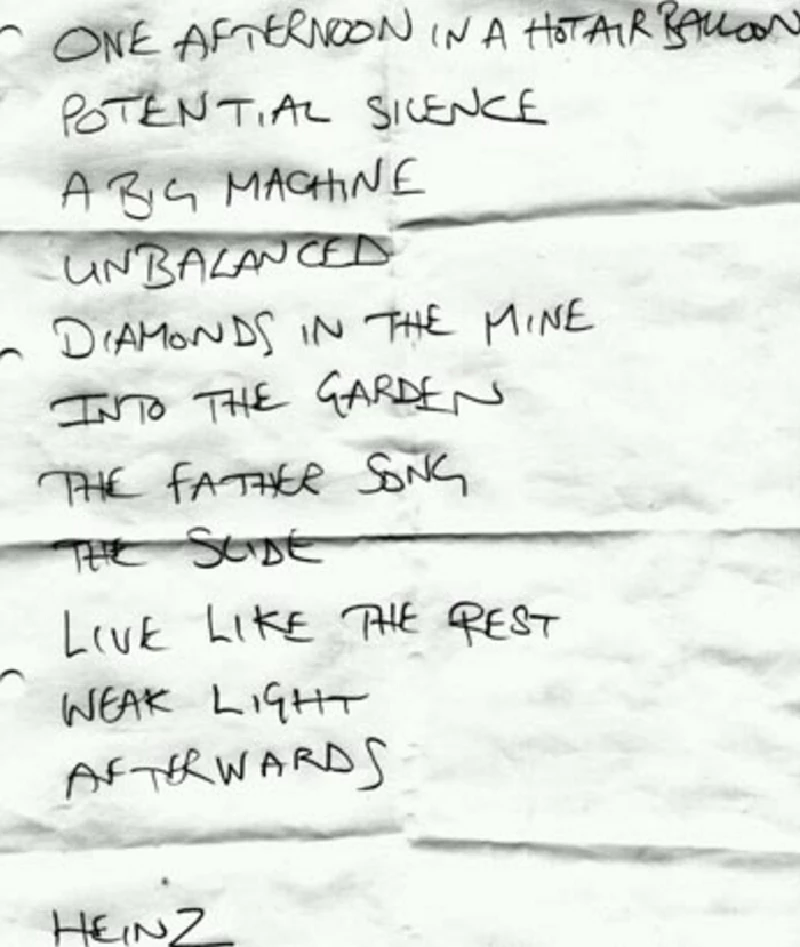 ONE AFTERNOON IN A HOT AIR BALLOON
POTENTIAL SILENCE
A BIG MACHINE
UNBALANCED
DIAMONDS IN THE MINE
INTO THE GARDEN
THE FATHER SONG
THE SLIDE
LIVE LIKE THE REST
WEAK LIGHT
AFTERWARDS
HEINZ